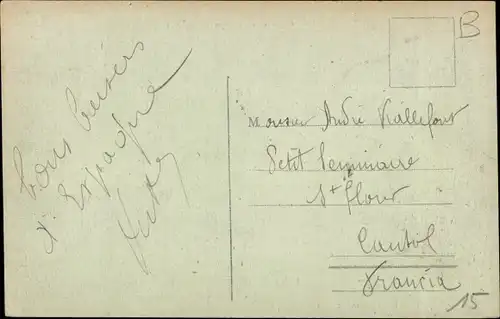 Bons baisers
d'Espagne
B
Monsieur André Viallefont
Petit Seminaire
St flour
Cantal
Francia
15